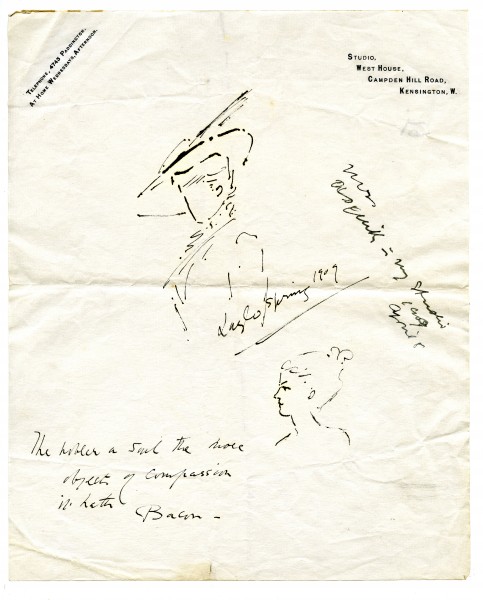 Telephone, 4743 Paddington.
At Home Wednesdays, Afternoon.
Studio,
West House,
Campden Hill Road,
Kensington, W.
Mrs.
in my studio
1909
April
Laszlo Spring 1909
The nobler a soul the more
objects of compassion
it hath
Bacon –